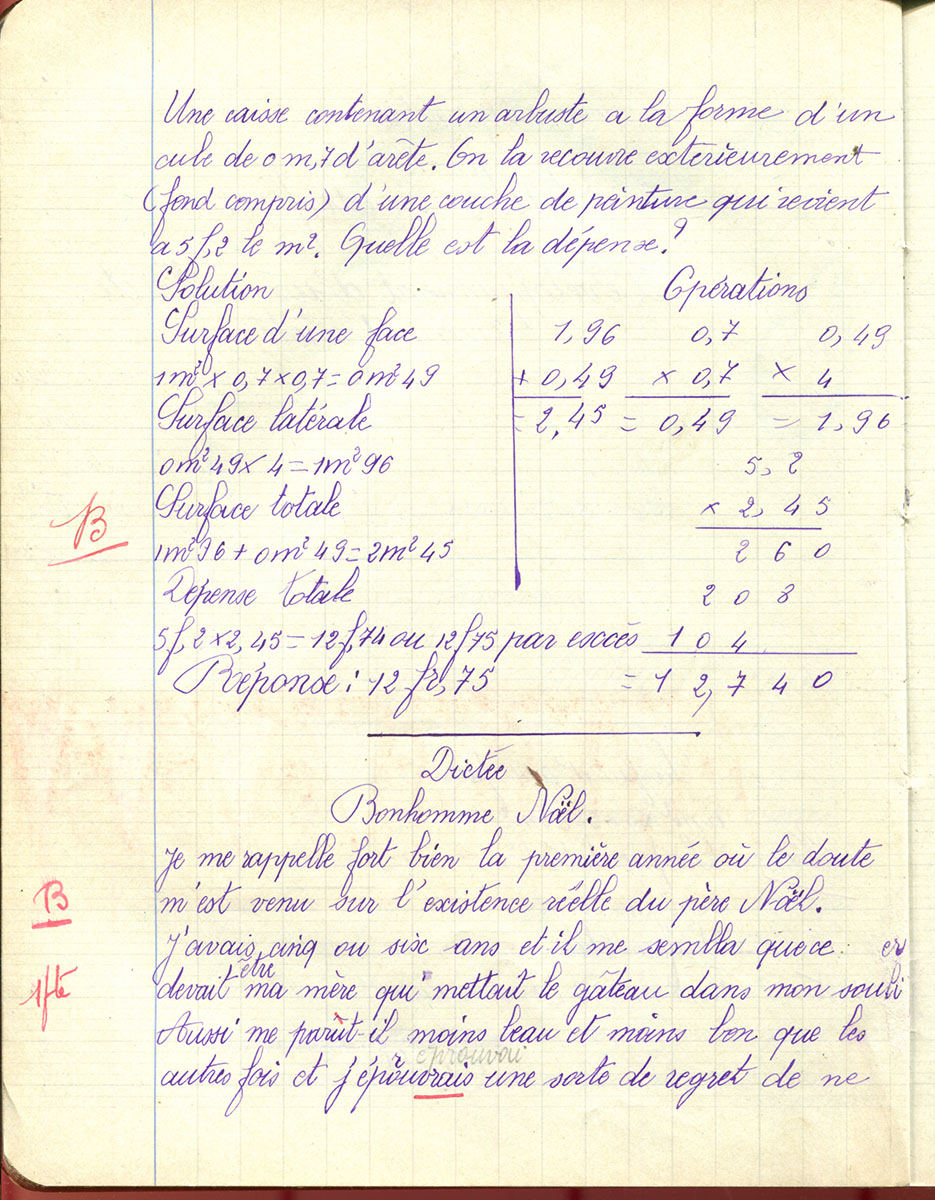 Une caisse contenant un arbuste a la forme d'un
cube de 0 m,7 d'arête. On la recouvre extérieurement
(fond compris) d'une couche de peinture qui revient
à 5 f,2 le m². Quelle est la dépense ?
Solution
Opérations
Surface d'une face
1,96 0,7 0,49
1m² × 0,7 × 0,7 = 0m²49
+ 0,49 × 0,7 × 4
Surface latérale
= 2,45 = 0,49 = 1,96
0m²49 × 4 = 1m²96
5,2
Surface totale
× 2,45
B
1m²96 + 0m²49 = 2m²45
2 6 0
Dépense totale
2 0 8
5f,2 × 2,45 = 12f,74 ou 12f75 par excès
1 0 4
Réponse : 12 fr,75
= 1 2,7 4 0
Dictée
Bonhomme Noël.
Je me rappelle fort bien la première année où le doute
B
m'est venu sur l'existence réelle du père Noël.
J'avais cinq ou six ans et il me sembla que ce
er
être
1 fte
devait ma mère qui mettait le gâteau dans mon souli
Aussi me parût-il moins beau et moins bon que les
éprouvai
autres fois et j'éprouvrais une sorte de regret de ne